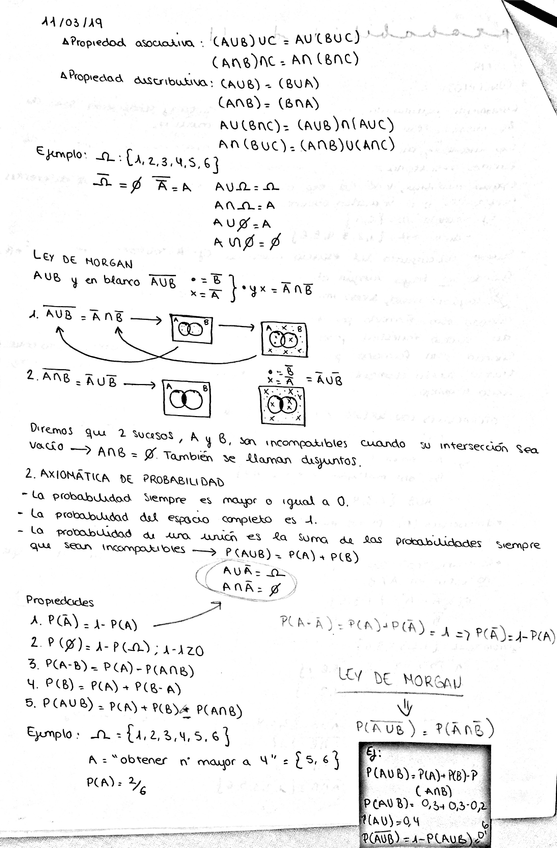 11/03/19
△Propiedad asociativa: (A∪B)∪C = A∪(B∪C)
(A∩B)∩C = A∩(B∩C)
△Propiedad discributiva: (A∪B) = (B∪A)
(A∩B) = (B∩A)
A∪(B∩C) = (A∪B)∩(A∪C)
A∩(B∪C) = (A∩B)∪(A∩C)
Ejemplo: Ω: {1,2,3,4,5,6}
Ω̅ = ∅ A̅ = A A∪Ω = Ω
A∩Ω = A
A∪∅ = A
A∩∅ = ∅
LEY DE MORGAN
A∪B y en blanco A̅∪̅B̅ • = B̅ x = A̅ } • y x = A̅ ∩ B̅
1. A̅∪̅B̅ = A̅ ∩ B̅ → A B → A B
2. A̅∩̅B̅ = A̅ ∪ B̅ → A B • = B̅ x = A̅ = A̅ ∪ B̅
Diremos que 2 sucesos, A y B, son incompatibles cuando su intersección sea
vacío → A∩B = ∅. También se llaman disjuntos.
2. AXIOMÁTICA DE PROBABILIDAD
- La probabilidad siempre es mayor o igual a 0.
- La probabilidad del espacio completo es 1.
- La probabilidad de una unión es la suma de las probabilidades siempre
que sean incompatibles → P(A∪B) = P(A) + P(B)
A∪A̅ = Ω
A∩A̅ = ∅
Propiedades
1. P(A̅) = 1 - P(A)
P(A-A̅) = P(A) + P(A̅) = 1 => P(A̅) = 1 - P(A)
2. P(∅) = 1 - P(Ω); 1-1=0
3. P(A-B) = P(A) - P(A∩B)
4. P(B) = P(A) + P(B-A)
5. P(A∪B) = P(A) + P(B) - P(A∩B)
LEY DE MORGAN
⇓
P(A̅∪̅B̅) = P(A̅ ∩ B̅)
Ejemplo: Ω = {1,2,3,4,5,6}
A = "obtener nº mayor a 4" = {5,6}
P(A) = 2/6
Ej:
P(A∪B) = P(A) + P(B) - P
(A∩B)
P(A∪B) = 0,3 + 0,3 - 0,2
P(AU) = 0,4
P(A̅∪̅B̅) = 1 - P(A∪B) = 0'6